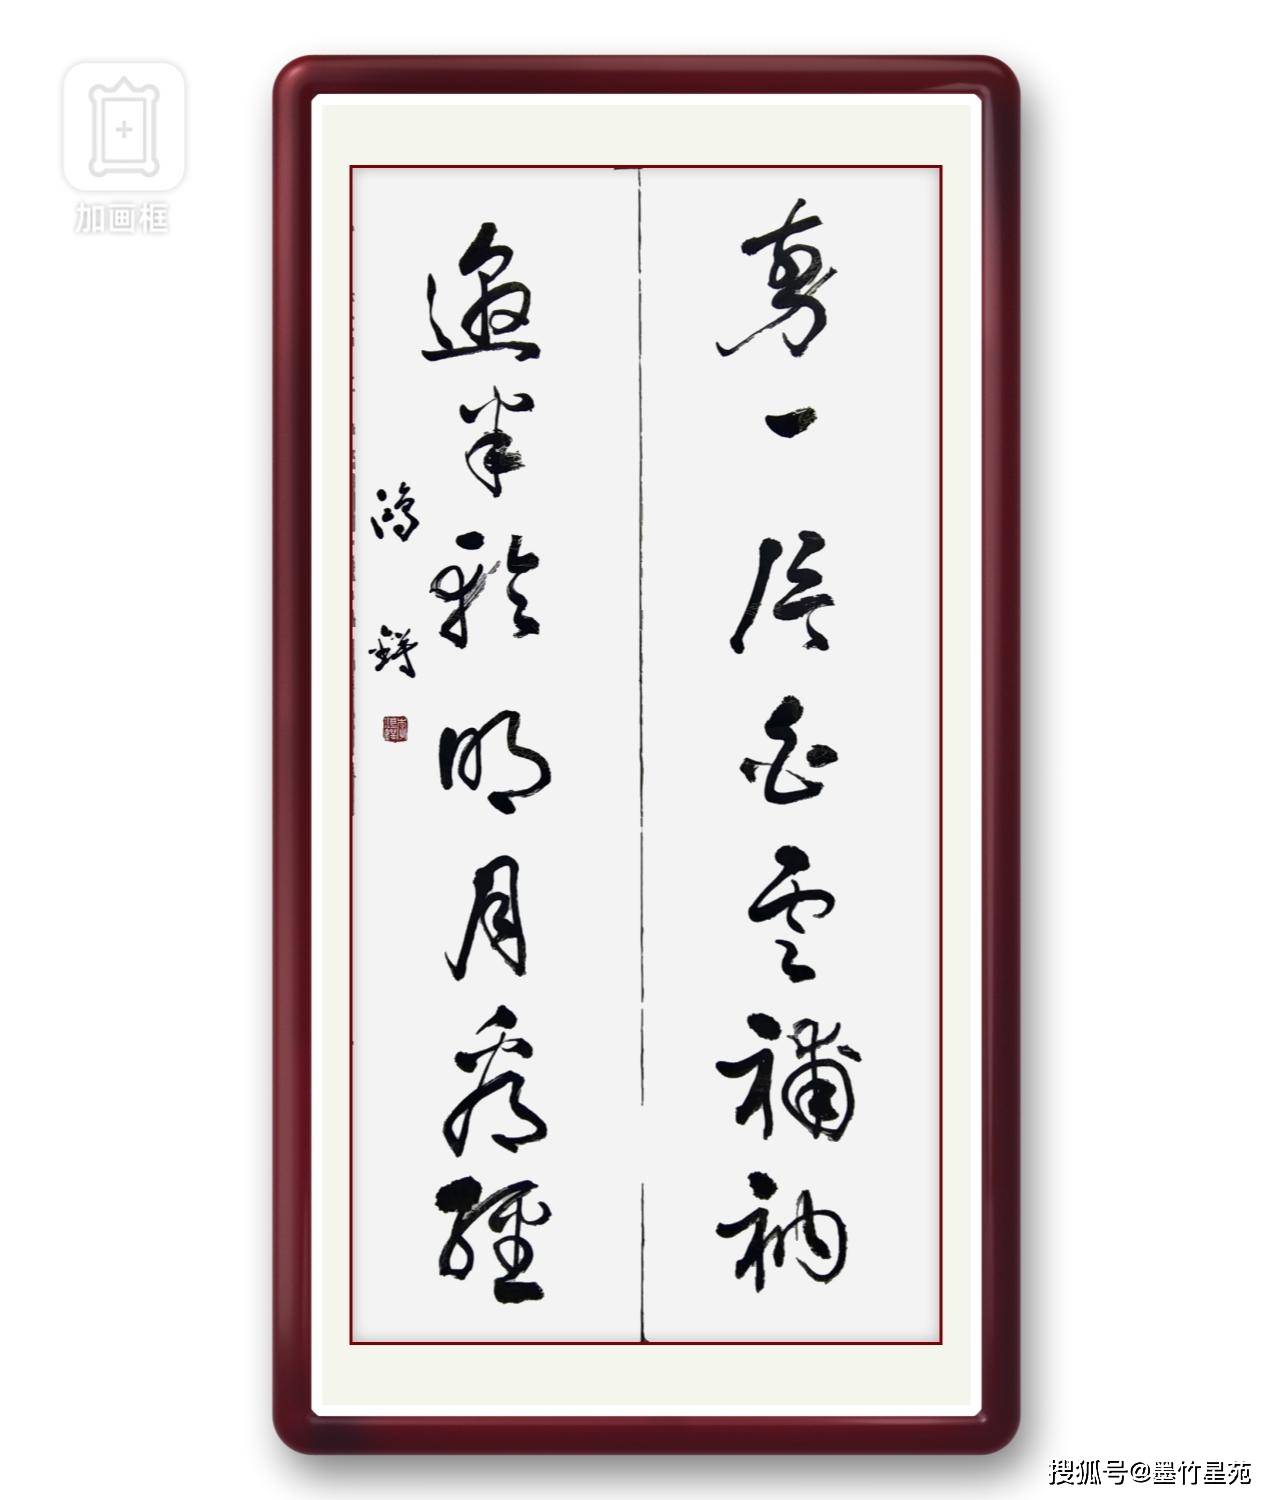 剪一片白雲補衲
邀半輪明月看經
鴻鐸
加画框
搜狐号@墨竹星苑